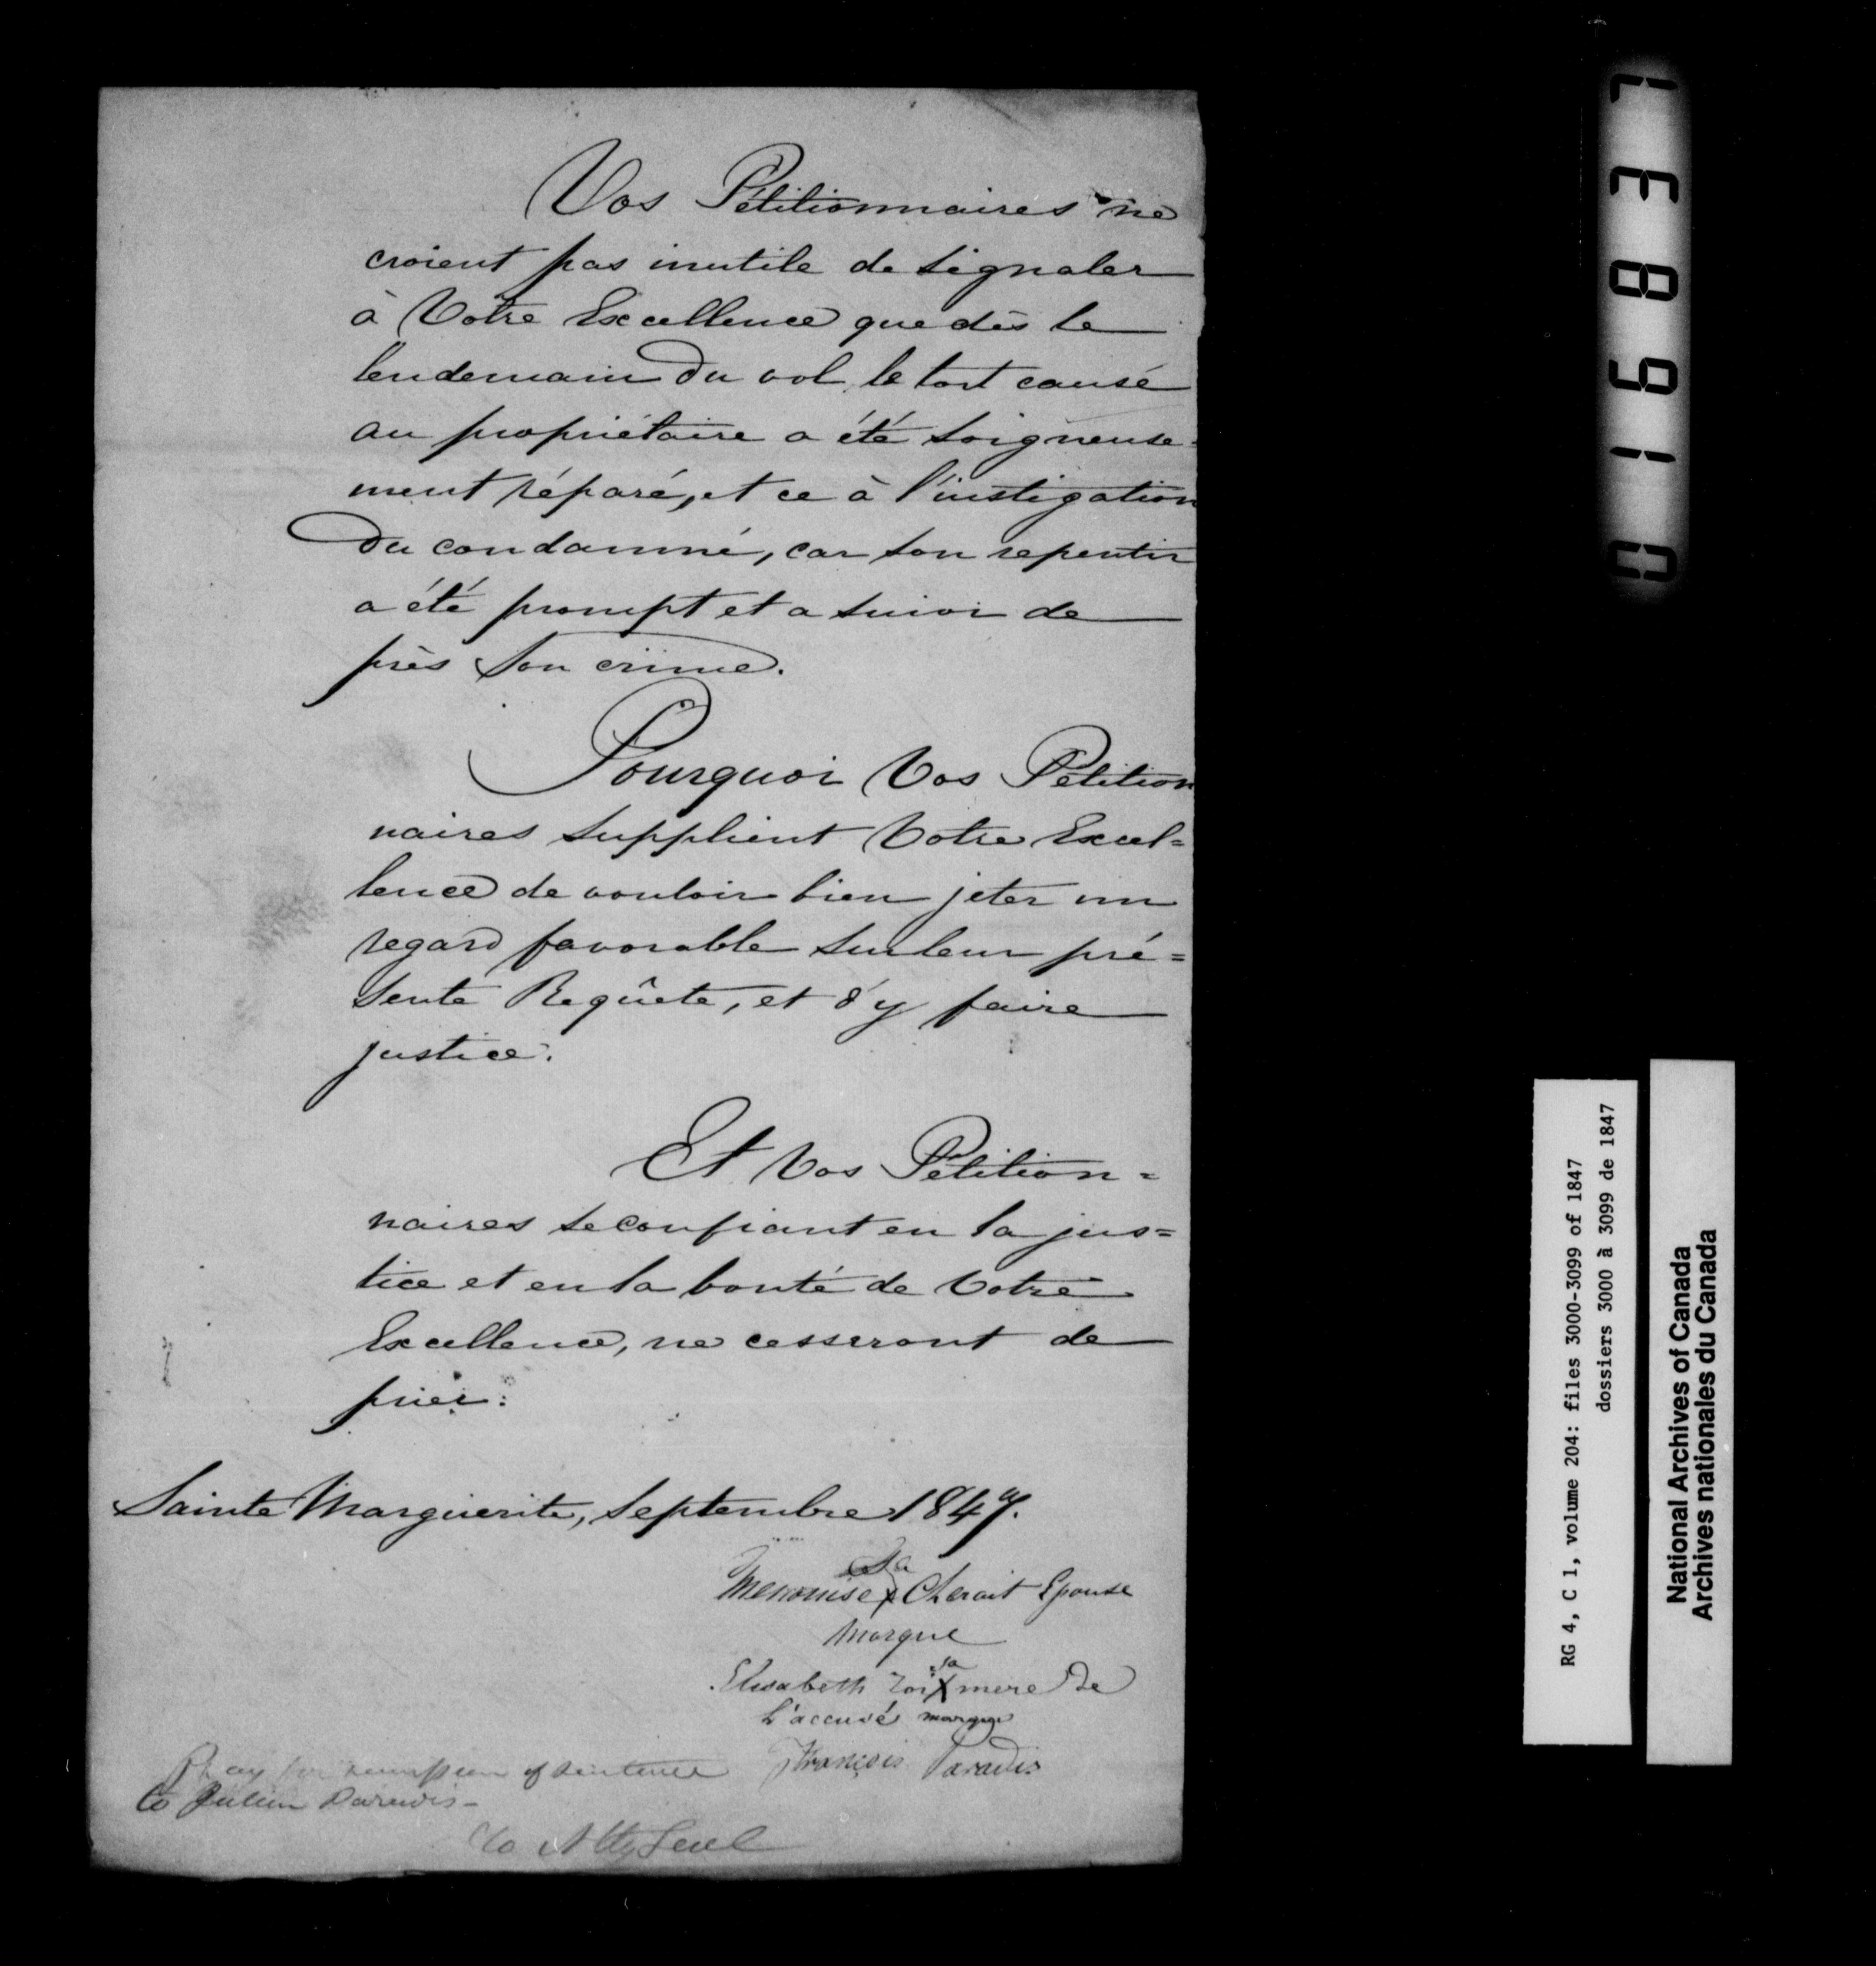 Vos Pétitionnaires ne
croient pas inutile de signaler
à Votre Excellence que dès le
lendemain du vol, le tort causé
au propriétaire a été soigneuse-
ment réparé, et ce à l'instigation
du condamné, car son repentir
a été prompt et a suivi de
près son crime.
Pourquoi Vos Pétition
naires supplient Votre Excel=
lence de vouloir bien jeter un
regard favorable sur leur pré=
sente Requête, et d'y faire
justice.
Et Vos Pétition=
naires se confiant en la jus=
tice et en la bonté de Votre
Excellence, ne cesseront de
prier.
Sainte Marguerite, Septembre 1847.
sa
X Epouse
marque
sa
Elisabeth X mere de
l'accusé marque
François Paradis
Pray for remission of sentence
to Julien Paradis-
To Atty Genl
016837
RG 4, C 1, volume 204: files 3000-3099 of 1847
dossiers 3000 à 3099 de 1847
National Archives of Canada
Archives nationales du Canada